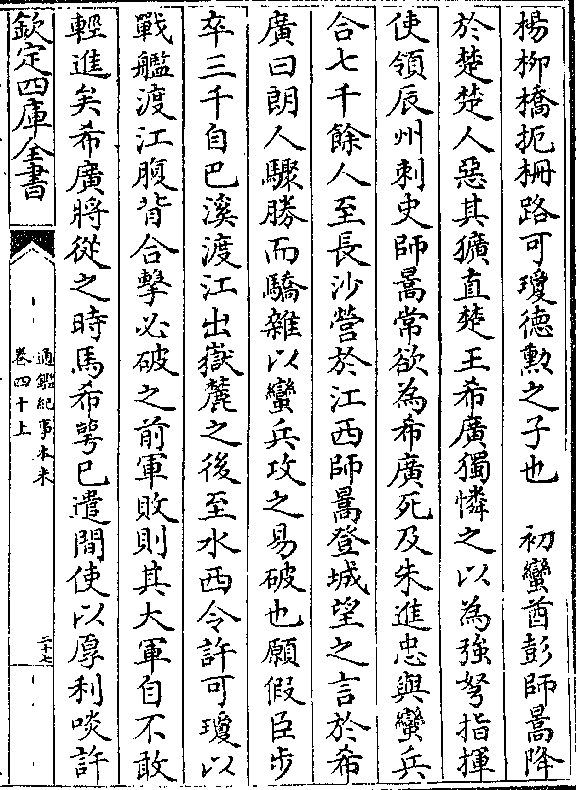 楊柳橋扼柵路可瓊德勲之子也　初蠻酋彭師暠降
於楚楚人惡其獷直楚王希廣獨憐之以為強弩指揮
使領辰州刺史師暠常欲為希廣死及朱進忠與蠻兵
合七千餘人至長沙營於江西師暠登城望之言於希
廣曰朗人驟勝而驕雜以蠻兵攻之易破也願假臣步
卒三千自巴溪渡江出嶽麓之後至水西令許可瓊以
戰艦渡江腹背合擊必破之前軍敗則其大軍自不敢
輕進矣希廣將從之時馬希萼已遣間使以厚利啖許
欽定四庫全書
通鑑紀事本末
卷四十上
二十七